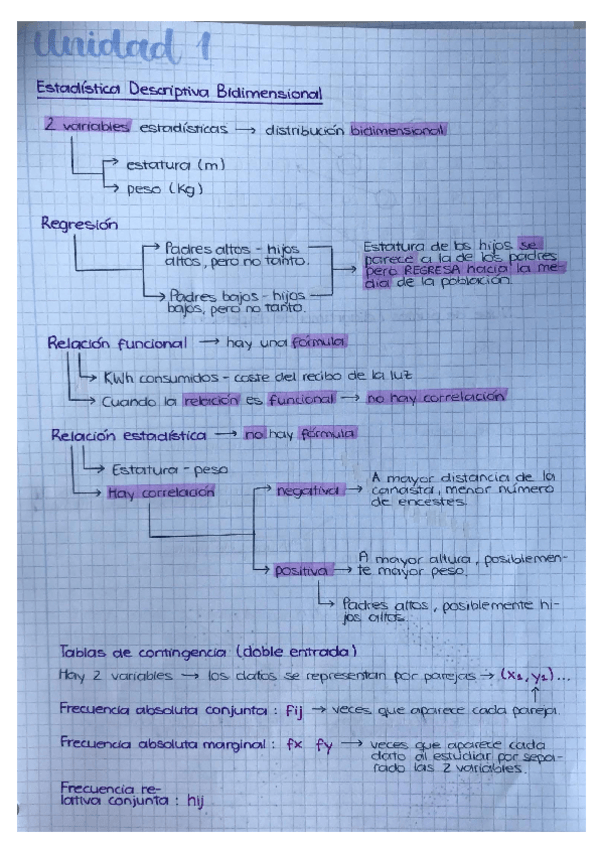 Unidad 1
Estadística Descriptiva Bidimensional
2 variables estadísticas → distribución bidimensional
estatura (m)
peso (Kg)
Regresión
Padres altos - hijos
altos, pero no tanto.
Padres bajos - hijos
bajos, pero no tanto.
Estatura de los hijos se
parece a la de los padres
pero REGRESA hacia la me-
dia de la población.
Relación funcional → hay una fórmula
KWh consumidos - coste del recibo de la luz
Cuando la relación es funcional → no hay correlación
Relación estadística → no hay fórmula
Estatura - peso
Hay correlación
negativa → A mayor distancia de la
canasta, menor número
de encestes.
positiva → A mayor altura, posiblemen-
te mayor peso.
Padres altos, posiblemente hi-
jos altos.
Tablas de contingencia (doble entrada)
Hay 2 variables → los datos se representan por parejas → (x₁, y₁)...
Frecuencia absoluta conjunta : fij → veces que aparece cada pareja.
Frecuencia absoluta marginal : fx fy → veces que aparece cada
dato al estudiar por sepa-
rado las 2 variables.
Frecuencia re-
lativa conjunta : hij